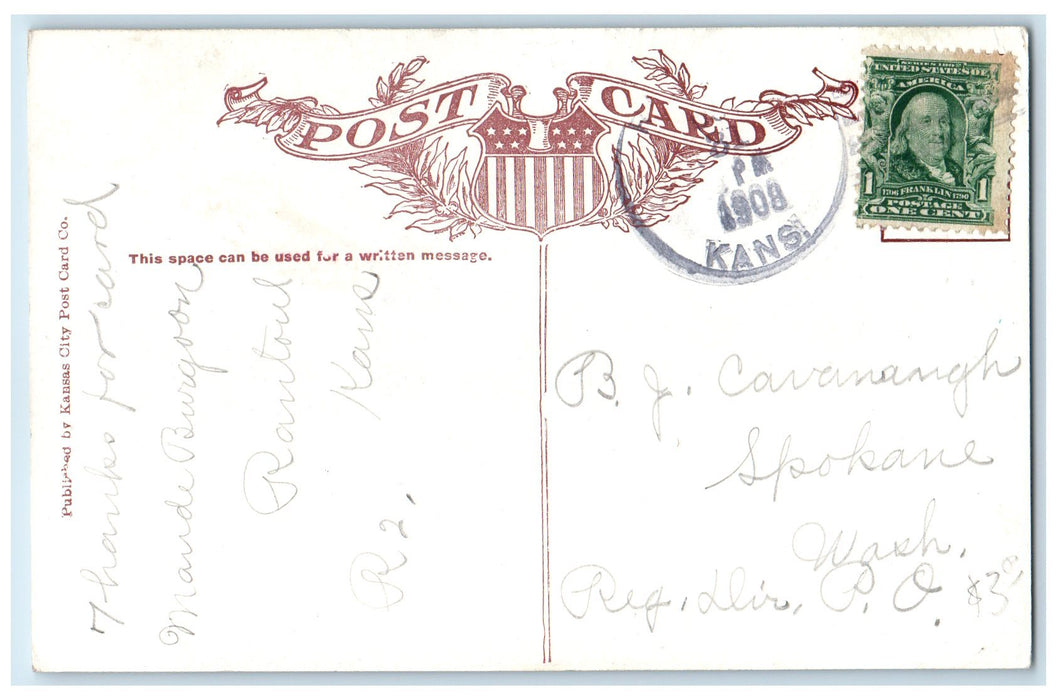 POST CARD
SERIES 1902
UNITED STATES OF
AMERICA
1706 FRANKLIN 1790
1 POSTAGE 1
ONE CENT
PM
1908
KANS.
This space can be used for a written message.
Published by Kansas City Post Card Co.
Thanks for card
Maude Burgoon
Rantoul
Kans
R 2,
B. J. Cavanaugh
Spokane
Wash.
Reg. Div. P. O.